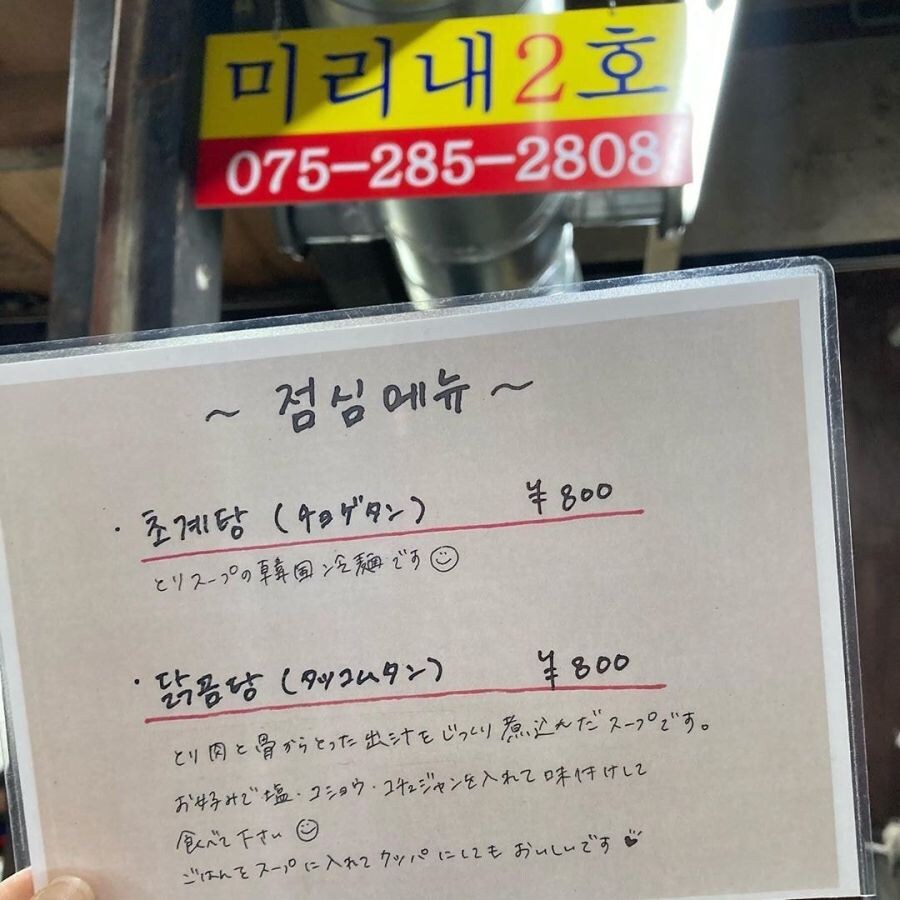 미리내2호
075-285-2808
~ 점심메뉴 ~
· 초계탕 (チョゲタン) ¥800
とりスープの韓国冷麺です☺
· 닭곰탕 (タッコムタン) ¥800
とり肉と骨からとった出汁をじっくり煮込んだスープです。
お好みで塩・コショウ・コチュジャンを入れて味付けして
食べて下さい☺
ごはんをスープに入れてクッパにしてもおいしいです♥